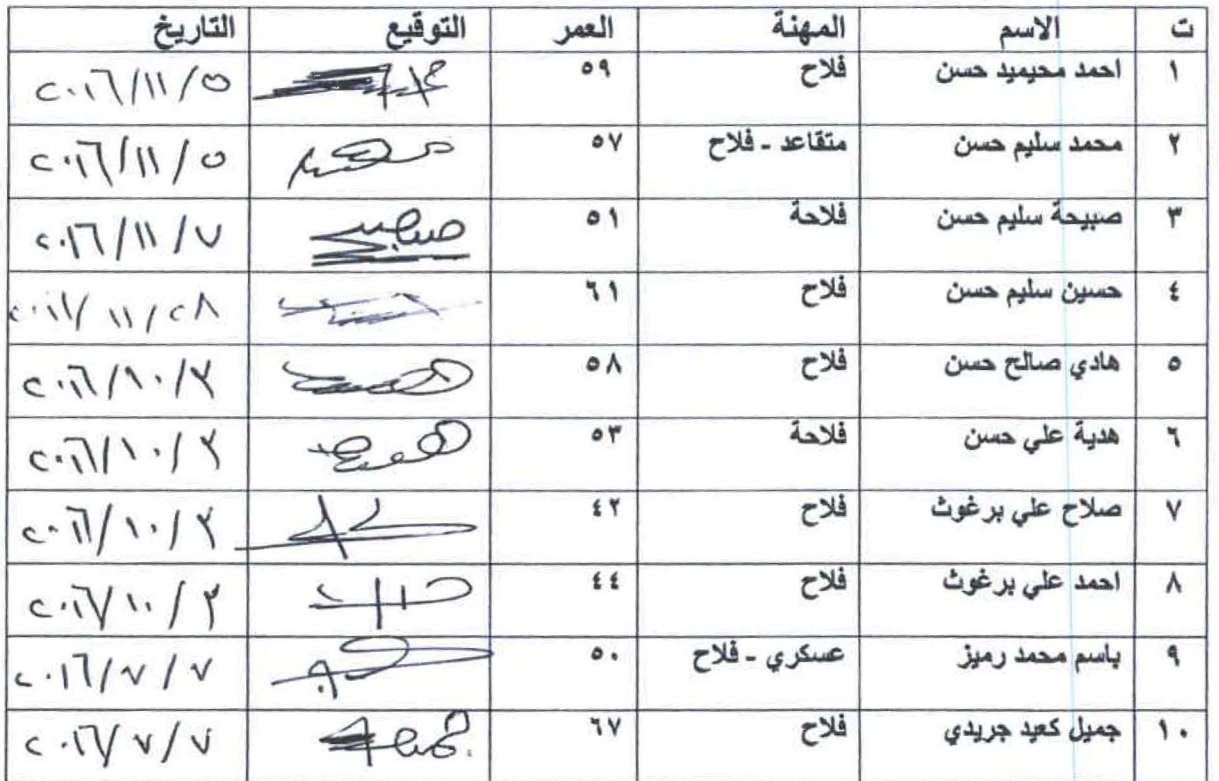 ت الاسم المهنة العمر التوقيع التاريخ
١ احمد محيميد حسن فلاح ٥٩ ٢٠١٦/١١/٥
٢ محمد سليم حسن متقاعد - فلاح ٥٧ ٢٠١٦/١١/٥
٣ صبيحة سليم حسن فلاحة ٥١ ٢٠١٦/١١/٧
٤ حسين سليم حسن فلاح ٦١ ٢٠١٦/١١/٢٨
٥ هادي صالح حسن فلاح ٥٨ ٢٠١٦/١٠/٢
٦ هدية علي حسن فلاحة ٥٣ ٢٠١٦/١٠/٢
٧ صلاح علي برغوث فلاح ٤٢ ٢٠١٦/١٠/٢
٨ احمد علي برغوث فلاح ٤٤ ٢٠١٦/١٠/٢
٩ باسم محمد رميز عسكري - فلاح ٥٠ ٢٠١٦/٧/٧
١٠ جميل كعيد جريدي فلاح ٦٧ ٢٠١٦/٧/٧